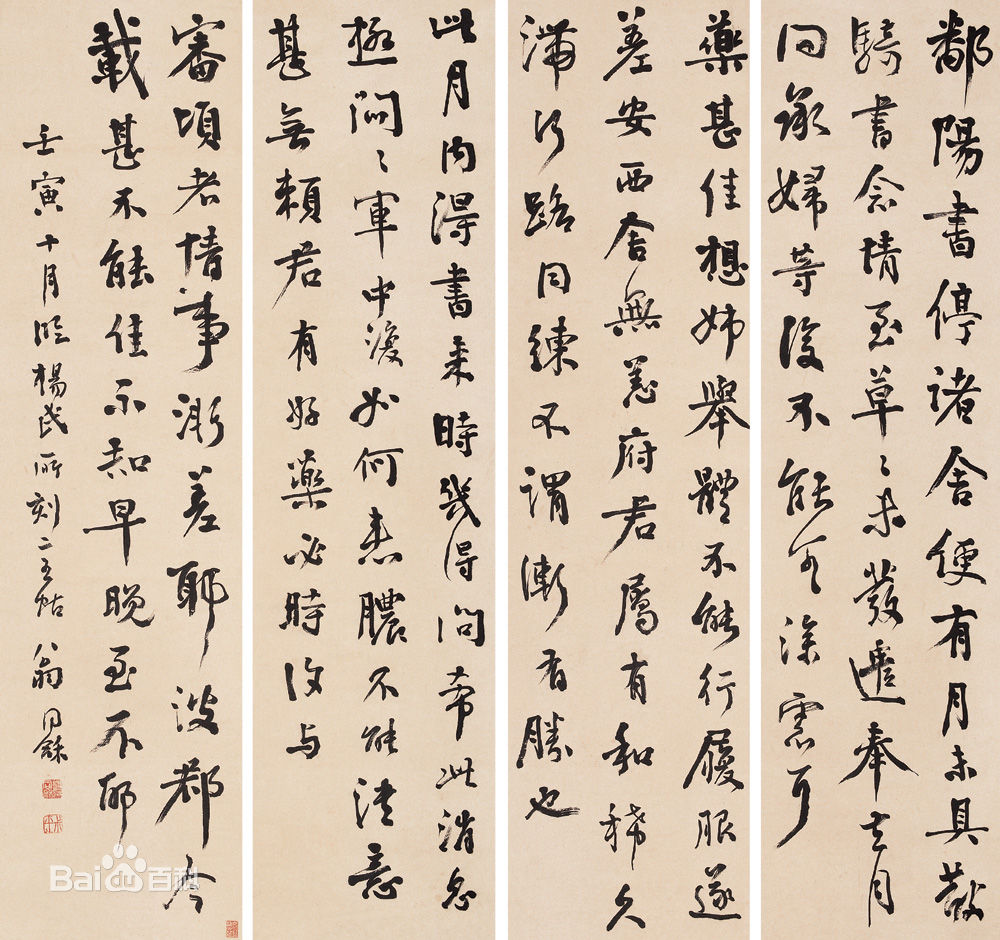 鄱陽書停諸舍便有月未具散
騎書念情至草〻未發遣奉去月
問承婦等復不能可深憂耳
藥甚佳想姊舉體不能行履服遂
差安西舍無恙府君屬有和稀久
滯行路同練不謂漸有勝也
此月內得書来時幾得問帝此消息
極悶〻軍中復如何患膿不能潰意
甚無賴君有好藥必時復与
審頃者情事漸差耶都今
載甚不能佳不知早晚至不邪
壬寅十月臨楊氏所刻二王帖翁同龢
Bai百科